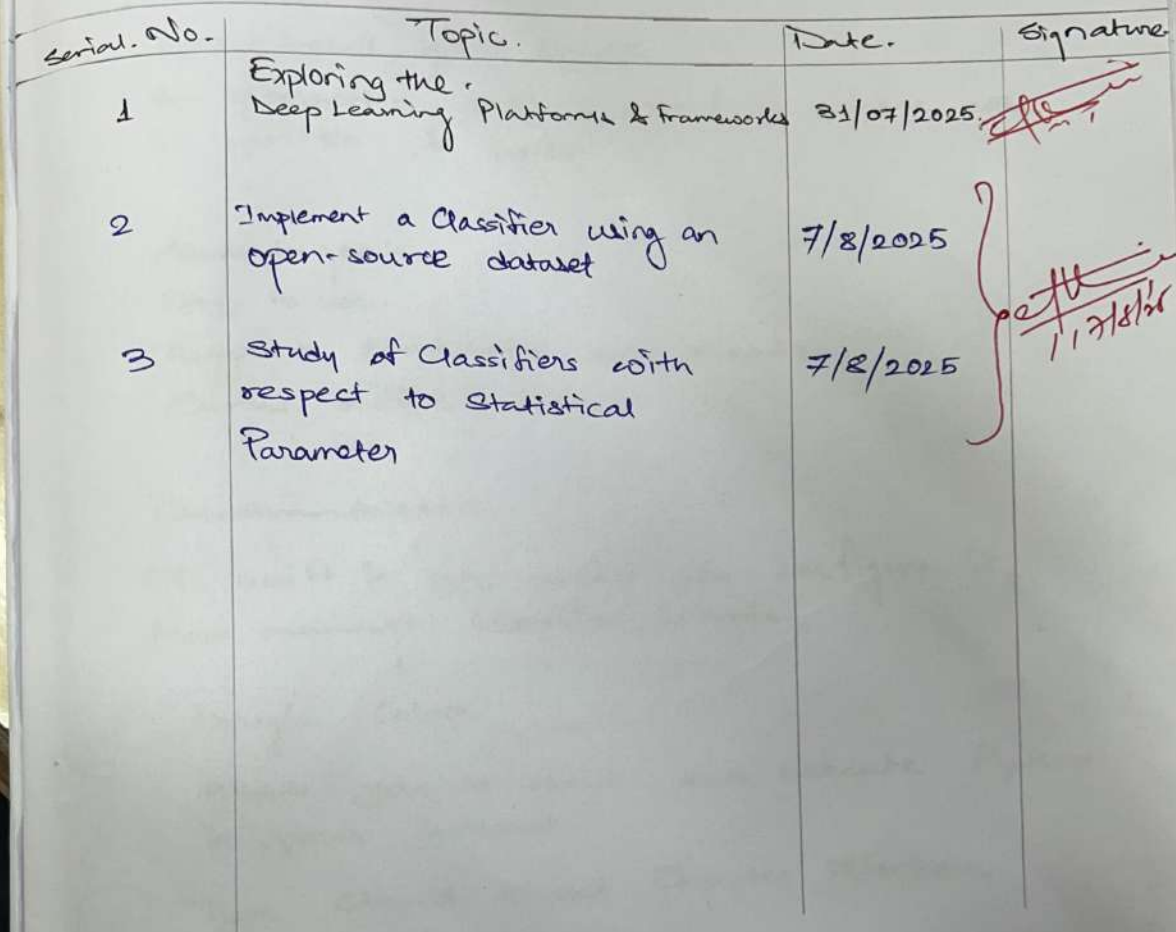 Serial. No. Topic. Date. Signature
Exploring the.
1 Deep Learning Platforms & Frameworks 31/07/2025.
2 Implement a Classifier using an 7/8/2025
open-source dataset
3 Study of Classifiers with 7/8/2025
respect to Statistical
Parameter